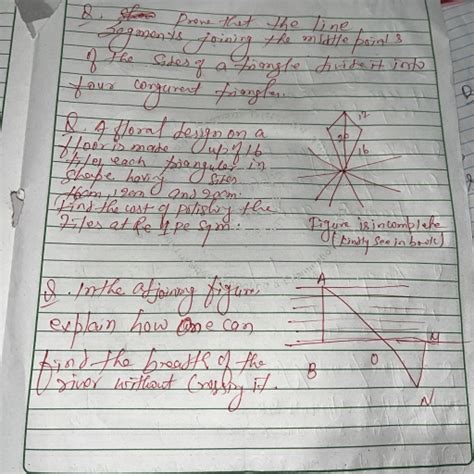 Q. Prove that the line
segments joining the middle points
of the sides of a triangle divide it into
four congurent triangles.
Q. A floral design on a
floor is made up of 16
tiles each triangular in
shape having sides
16cm, 12cm and 20cm.
Find the cost of polishing the
Tiles at Re 1 per sqm.
12
20
16
Figure is incomplete
(kindly see in book)
Q. In the adjoining figure,
explain how one can
find the breadth of the
river without Crossing it.
A
B
O
M
N